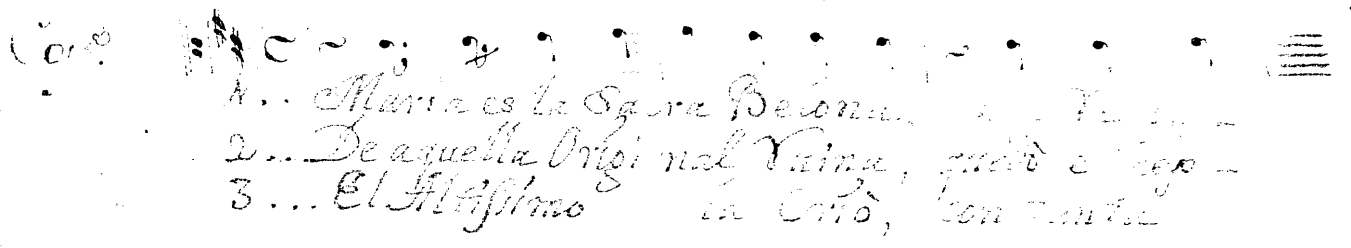 1.. Maria es la Sacra Belona
2... De aquella Original Ruina, quedò
3... El Altissimo la Criò, con tanta